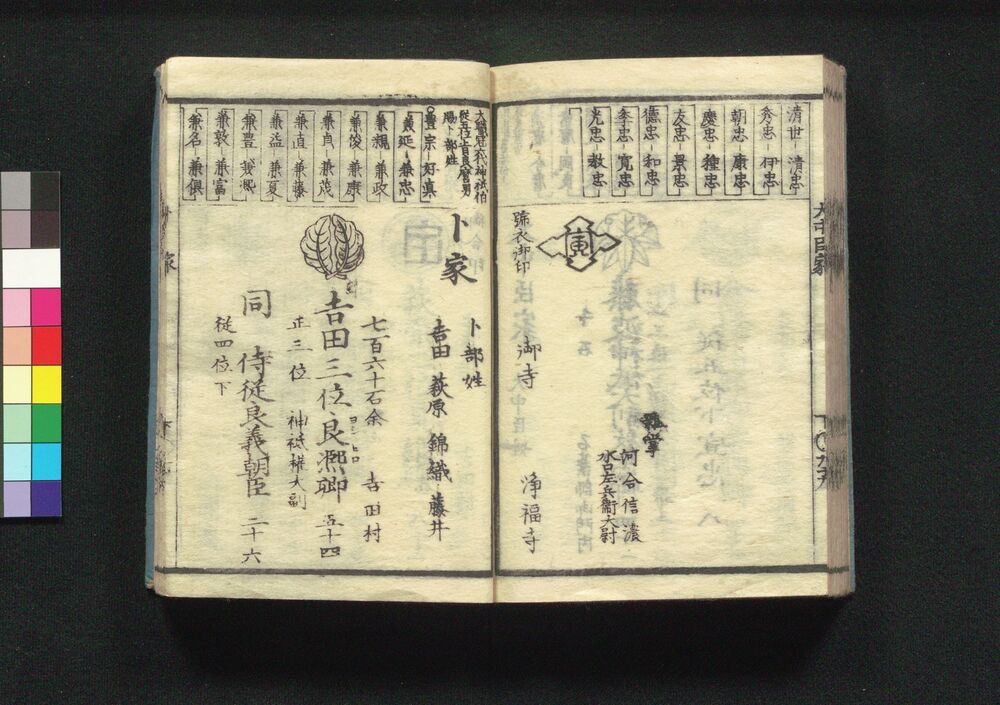 清世-清忠
秀忠-伊忠
朝忠-康忠
慶忠-種忠
友忠-景忠
德忠-和忠
季忠-寛忠
光忠-教忠
寅
號衣御印
御寺
浄福寺
雑掌
河合信濃
水口左兵衛大尉
大中臣家
大織冠六代神祇伯
從五位上日良麿男
賜卜部姓
豊宗-好真
兼延-兼忠
兼親-兼政
兼俊-兼康
兼貞-兼茂
兼直-兼藤
兼益-兼夏
兼豊-兼凞
兼敦-兼富
兼名-兼俱
卜家
卜部姓
吉田 萩原 錦織 藤井
七百六十石余 吉田村
吉田三位良凞卿 五十四
ヨシヒロ
正三位 神祇權大副
同 侍従良義朝臣 二十六
從四位下